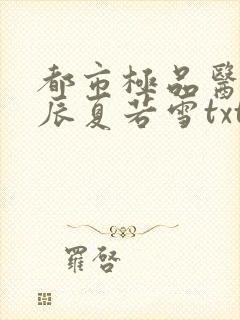 都市極品醫
辰夏若雪txt
羅啓